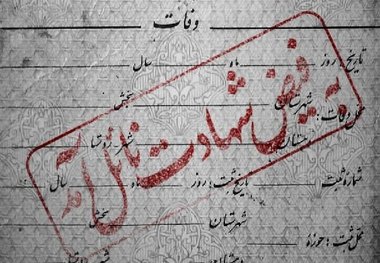 وفات
تاریخ: روز ماه سال
محل وفات: شهرستان بخش
دهستان شهر - روستا
شماره ثبت تاریخ ثبت: روز ماه سال
محل ثبت: حوزه شهرستان بخش
به فیض شهادت نائل آمد